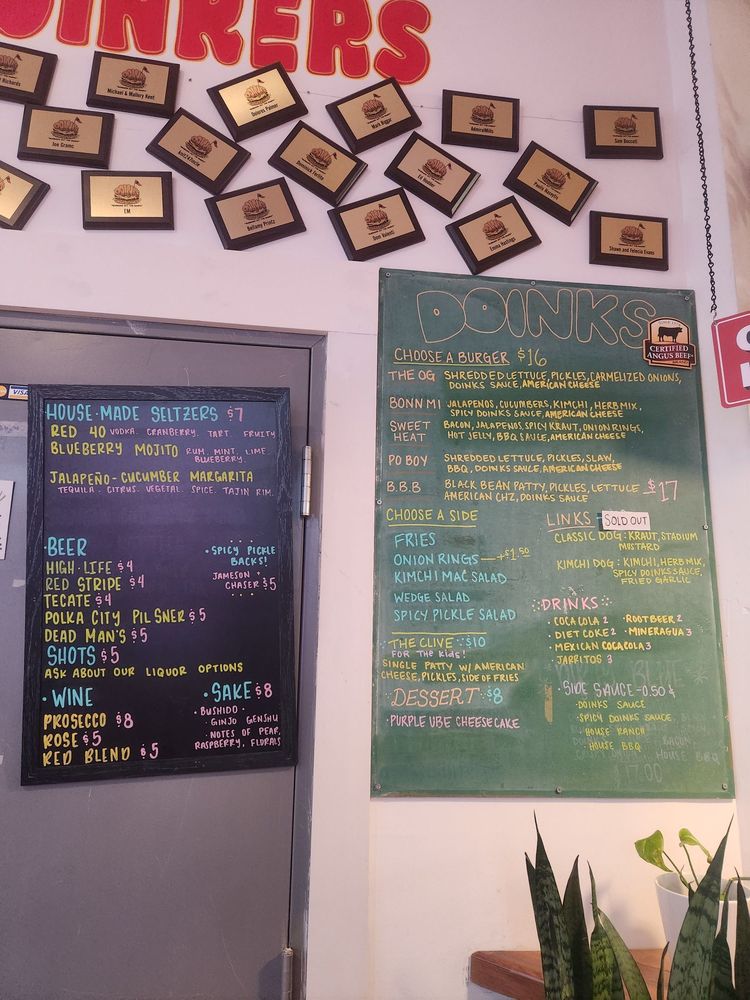 OINKERS
Richards
Michael & Mallory Kent
Dolores Palmer
Mark Biggar
AdmiralMills
Sam Boccuti
Joe Gramc
Dominick Fortino
Bellamy Printz
Dom Valenti
Emma Hastings
Shawn and Felecia Evans
EM
VISA
HOUSE-MADE SELTZERS $7
RED 40 VODKA. CRANBERRY. TART. FRUITY
BLUEBERRY MOJITO RUM. MINT. LIME.
BLUEBERRY.
JALAPEÑO-CUCUMBER MARGARITA
TEQUILA. CITRUS. VEGETAL. SPICE. TAJIN RIM.
·BEER
HIGH-LIFE $4
RED STRIPE $4
TECATE $4
POLKA CITY PILSNER $5
DEAD MAN'S $5
·SPICY PICKLE
BACKS!
JAMESON +
CHASER $5
SHOTS $5
ASK ABOUT OUR LIQUOR OPTIONS
·WINE
PROSECCO $8
ROSE $5
RED BLEND $5
·SAKE $8
·BUSHIDO·
·GINJO GENSHU
·NOTES OF PEAR,
RASPBERRY, FLORALS
DOINKS
CERTIFIED
ANGUS BEEF
CHOOSE A BURGER $16
THE OG SHREDDED LETTUCE, PICKLES, CARMELIZED ONIONS,
DOINKS SAUCE, AMERICAN CHEESE
BONN MI JALAPENOS, CUCUMBERS, KIMCHI, HERB MIX,
SPICY DOINKS SAUCE, AMERICAN CHEESE
SWEET HEAT BACON, JALAPENOS, SPICY KRAUT, ONION RINGS,
HOT JELLY, BBQ SAUCE, AMERICAN CHEESE
PO BOY SHREDDED LETTUCE, PICKLES, SLAW,
BBQ, DOINKS SAUCE, AMERICAN CHEESE
B.B.B BLACK BEAN PATTY, PICKLES, LETTUCE
AMERICAN CHZ, DOINKS SAUCE
$17
CHOOSE A SIDE
FRIES
ONION RINGS —+$1.50
KIMCHI MAC SALAD
WEDGE SALAD
SPICY PICKLE SALAD
THE CLIVE $10
FOR THE Kids!
SINGLE PATTY W/ AMERICAN
CHEESE, PICKLES, SIDE OF FRIES
DESSERT $8
·PURPLE UBE CHEESECAKE
LINKS SOLD OUT
CLASSIC DOG: KRAUT, STADIUM
MUSTARD
KIMCHI DOG: KIMCHI, HERB MIX,
SPICY DOINKS SAUCE,
FRIED GARLIC
DRINKS
·COCA COLA 2 ·ROOTBEER 2
·DIET COKE 2 ·MINERAGUA 3
·MEXICAN COCACOLA 3
·JARRITOS 3
·SIDE SAUCE - 0.50¢
·DOINKS SAUCE
·SPICY DOINKS SAUCE
·HOUSE RANCH
·HOUSE BBQ